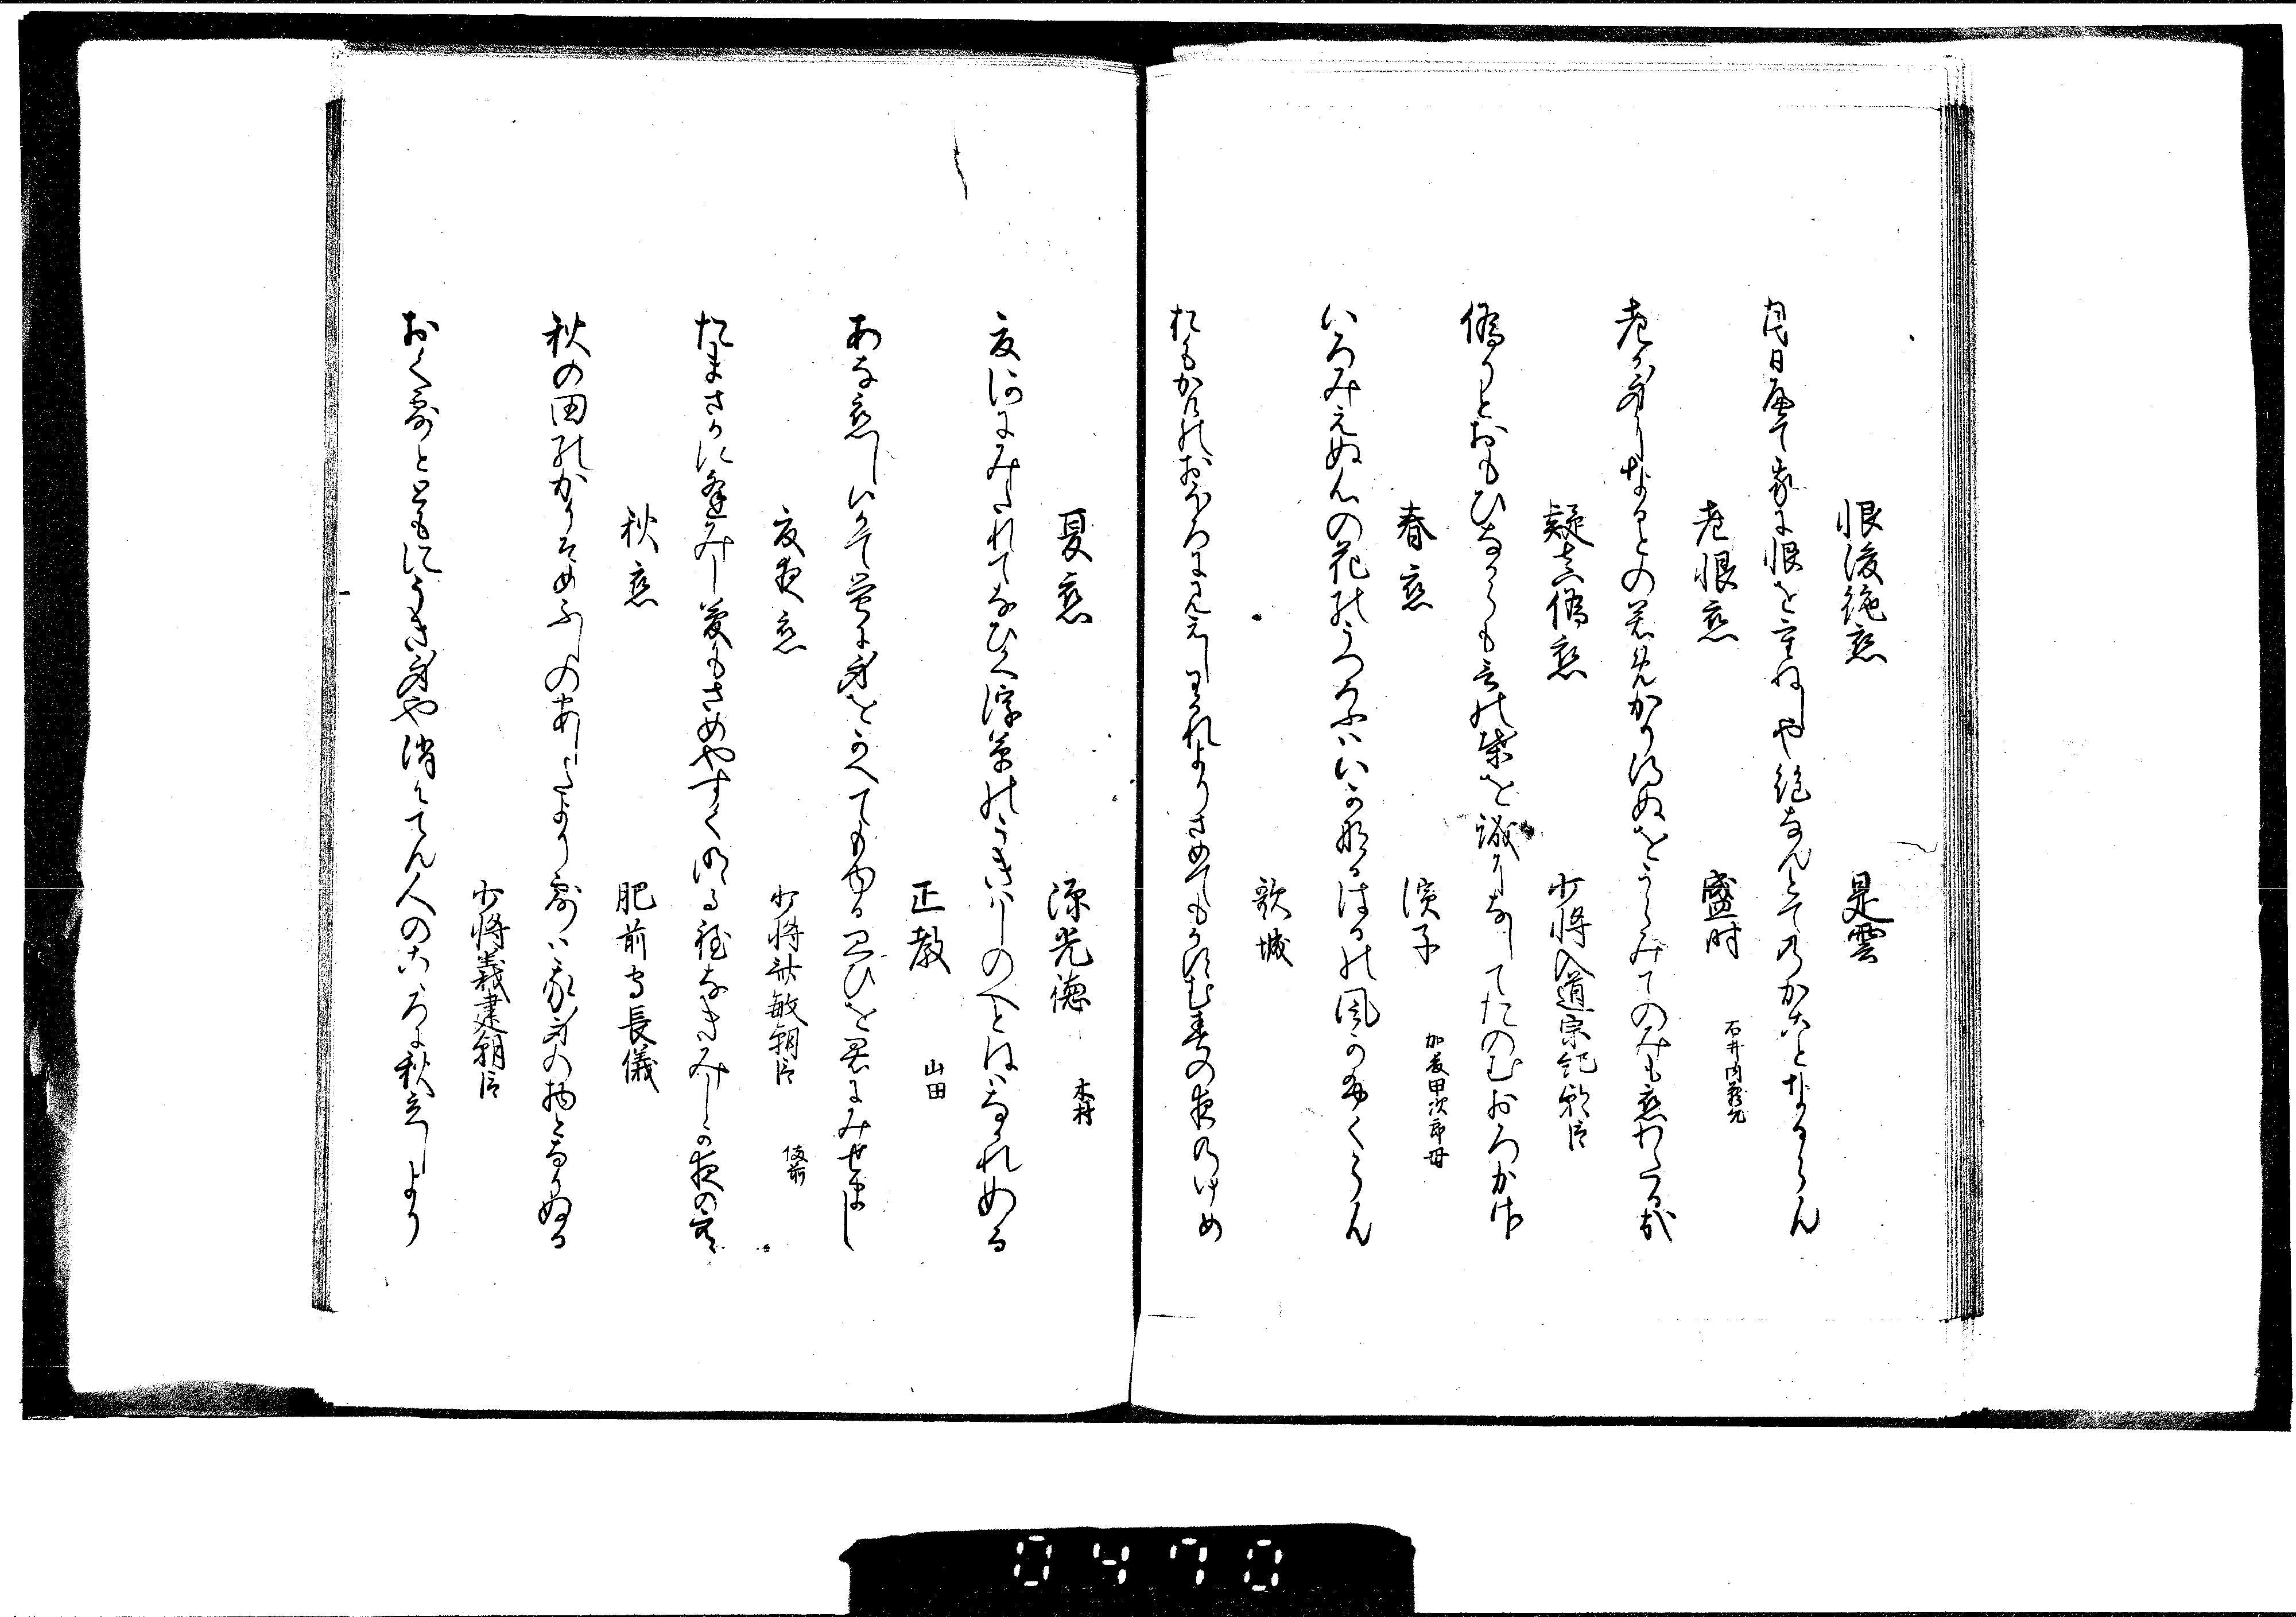 恨後絶恋 是雲
月日経て家に恨を重ねしや絶なんとてのかことなるらん
老恨恋 盛時 石井内蔵允
老か身のしなことの若菜かりぬをうらみてのみも恋わたる哉
疑真偽恋 少将入道宗紀朝臣
偽りとおもひなからも言の葉を誠になしてたのむおろかさ
春恋 濱子 加藤甲次郎母
いろみえぬ心の花のうつろふはいかなるはるの風かふくらん
歌城
おもかけのおほろにみえしわかれよりさめてもかすむ春の夜のゆめ
夏恋 源光徳 木村
夏河にみたれてなひく浮草のうきはしのへとねはなかれめる
正教 山田
あな恋しいかて蛍に身をかへてもゆる思ひを君にみせまし
夏夜恋 少将斉敏朝臣 備前
たまさかに逢みし夢もさめやすくぬる程なきみしか夜の空
秋恋 肥前守長儀
秋の田のかりそめふしのあしたより露は我身の物となりぬる
少将義建朝臣
おく露とともにうき身や消てん人のこゝろに秋立しより
0470